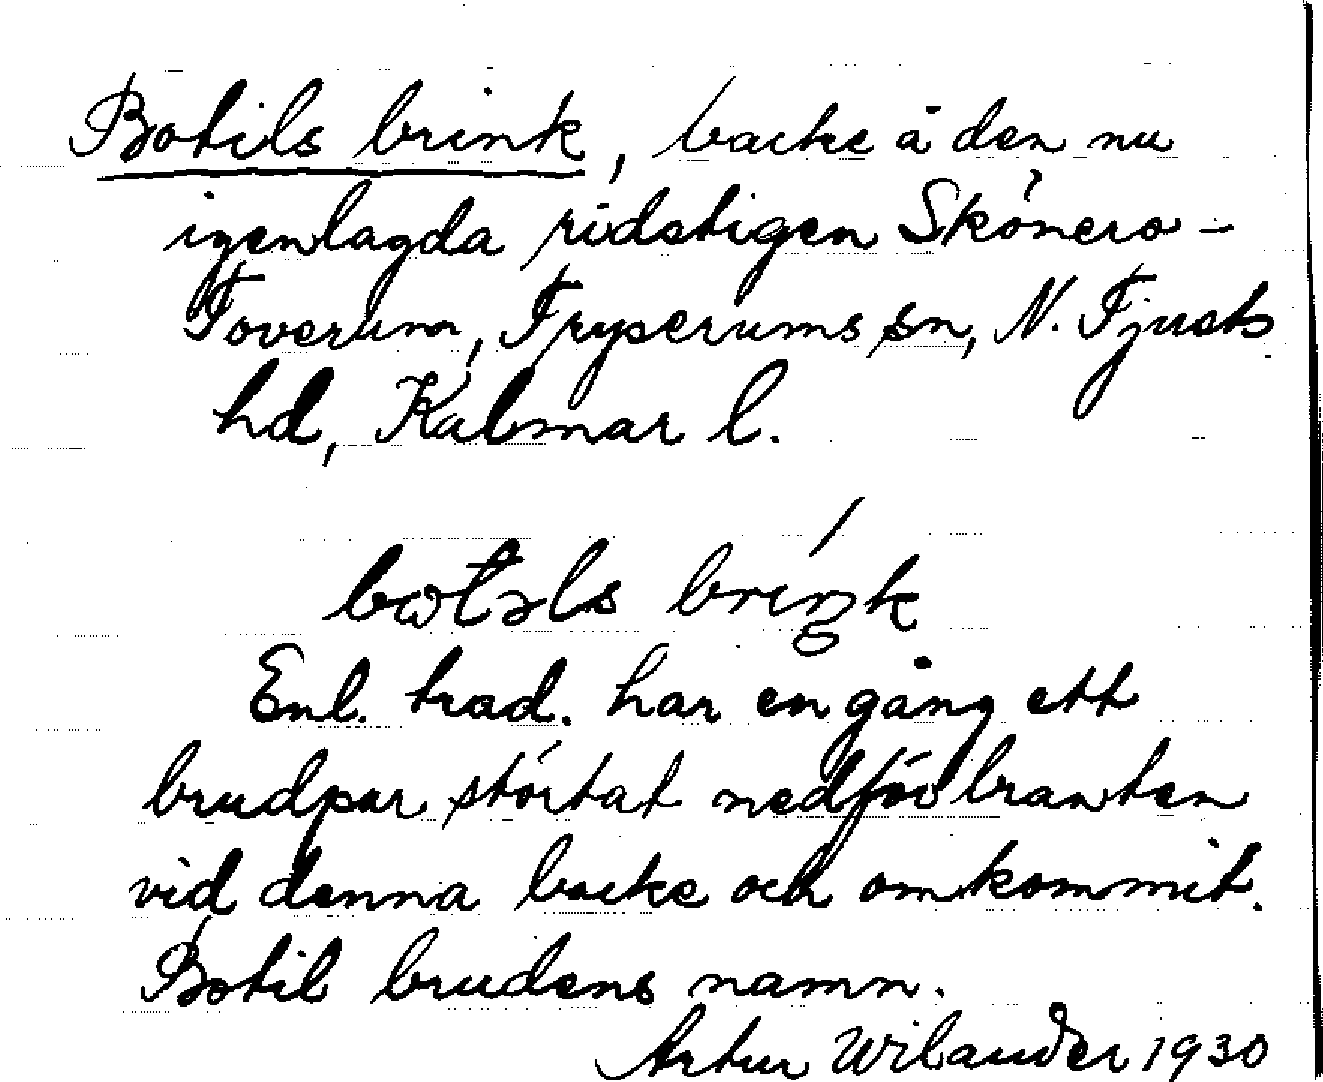 Botils brink, backe å den nu
igenlagda ridstigen Skönero -
Toverum, Tryserums sn, N. Tjusts
hd, Kalmar l.
botəls briŋk
Enl. trad. har en gång ett
brudpar störtat nedför branten
vid denna backe och omkommit.
Botil brudens namn.
Artur Wilander 1930